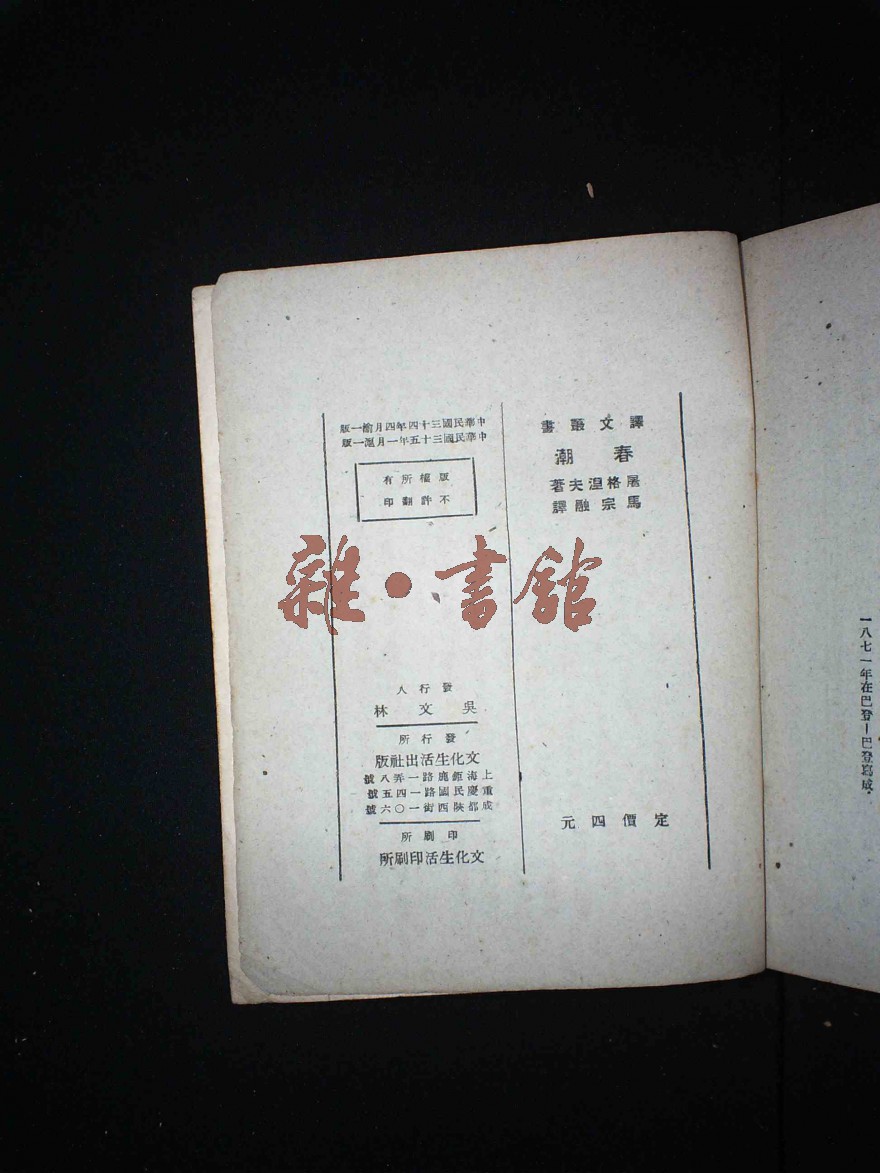 譯文叢書
春潮
屠格湼夫著
馬宗融譯
定價四元
中華民國三十四年四月渝一版
中華民國三十五年一月滬一版
版權所有
不許翻印
發行人
吳文林
發行所
文化生活出版社
上海鉅鹿路一弄八號
重慶民國路一四五號
成都陝西街一〇六號
印刷所
文化生活印刷所
雜·書舘
一八七一年在巴登—巴登寫成.